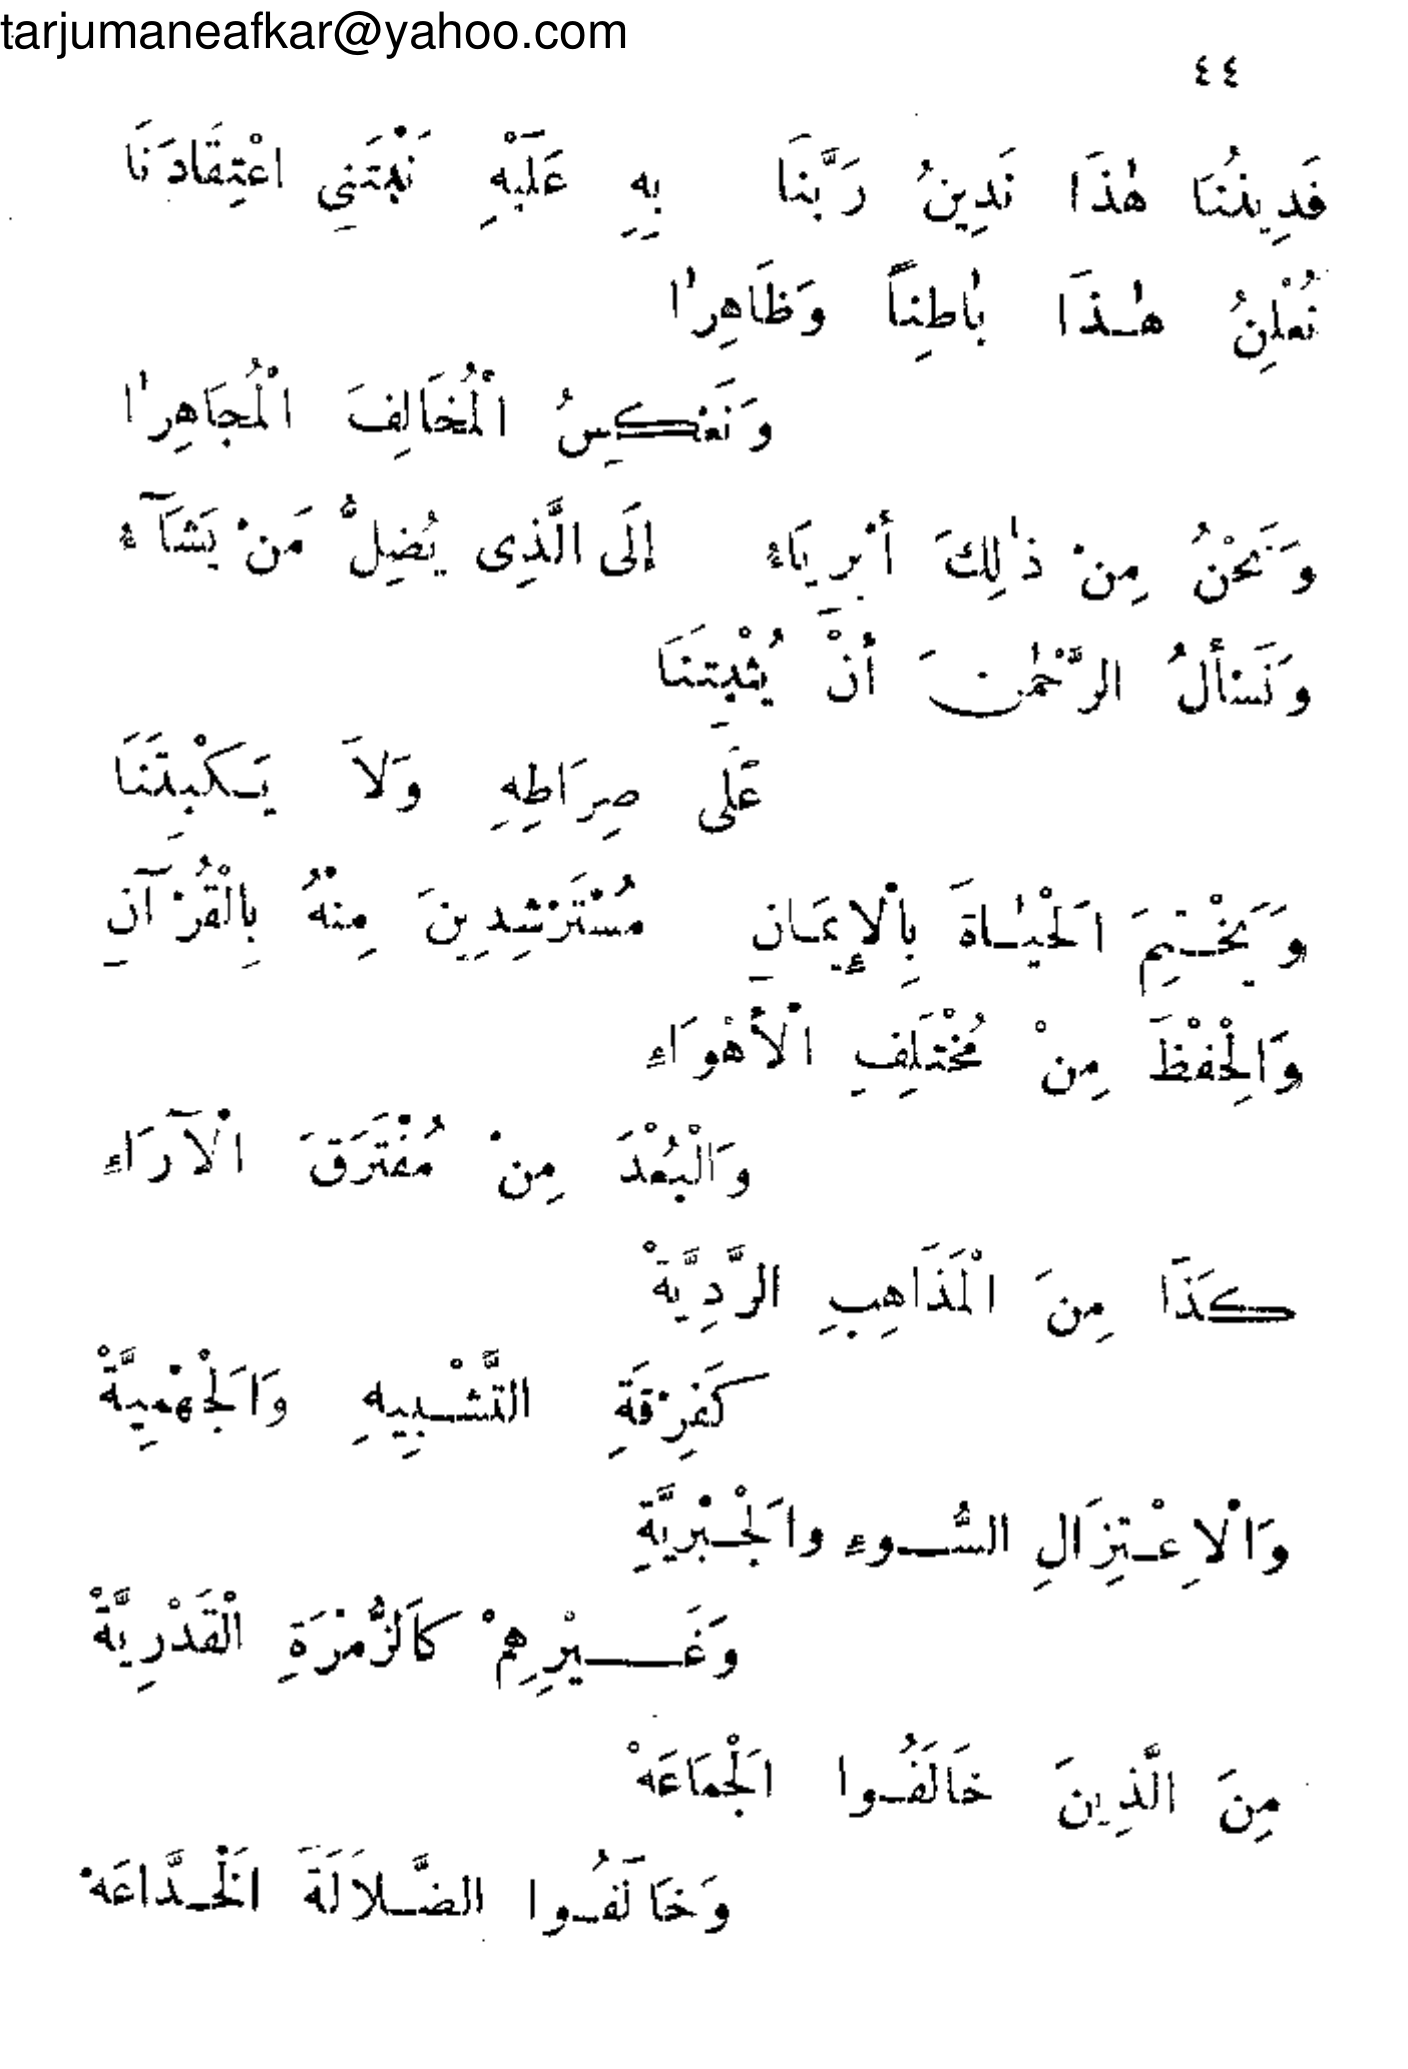 tarjumaneafkar@yahoo.com
٤٤
فَدِينُنَا هٰذَا نَدِينُ رَبَّنَا بِهِ عَلَيْهِ نَبْتَنِي اعْتِقَادَنَا
نُعْلِنُ هٰذَا بٰاطِنًا وَظَاهِرًا
وَنَعْكِسُ الْمُخَالِفَ الْمُجَاهِرًا
وَنَحْنُ مِنْ ذٰلِكَ أَبْرِيَاءُ إِلَى الَّذِى يُضِلُّ مَنْ يَشَآءُ
وَنَسْأَلُ الرَّحْمٰنَ أَنْ يُثْبِتَنَا
عَلَى صِرَاطِهِ وَلَا يَكْبِتَنَا
وَيَخْتِمَ الْحَيٰاةَ بِالْإِيمَانِ مُسْتَرْشِدِينَ مِنْهُ بِالْقُرْآنِ
وَالْحِفْظَ مِنْ مُخْتَلِفِ الْأَهْوَاءِ
وَالْبُعْدَ مِنْ مُفْتَرَقَ الْآرَاءِ
كَذَا مِنَ الْمَذَاهِبِ الرَّدِيَّةْ
كَفِرْقَةِ التَّشْبِيهِ وَالْجَهْمِيَّةْ
وَالْاِعْتِزَالِ السُّوءِ والْجَبْرِيَّةِ
وَغَيْرِهِمْ كَالزُّمْرَةِ الْقَدْرِيَّةْ
مِنَ الَّذِينَ خَالَفُوا الْجَمَاعَهْ
وَحَالَفُوا الضَّلَالَةَ الْخَدَّاعَهْ